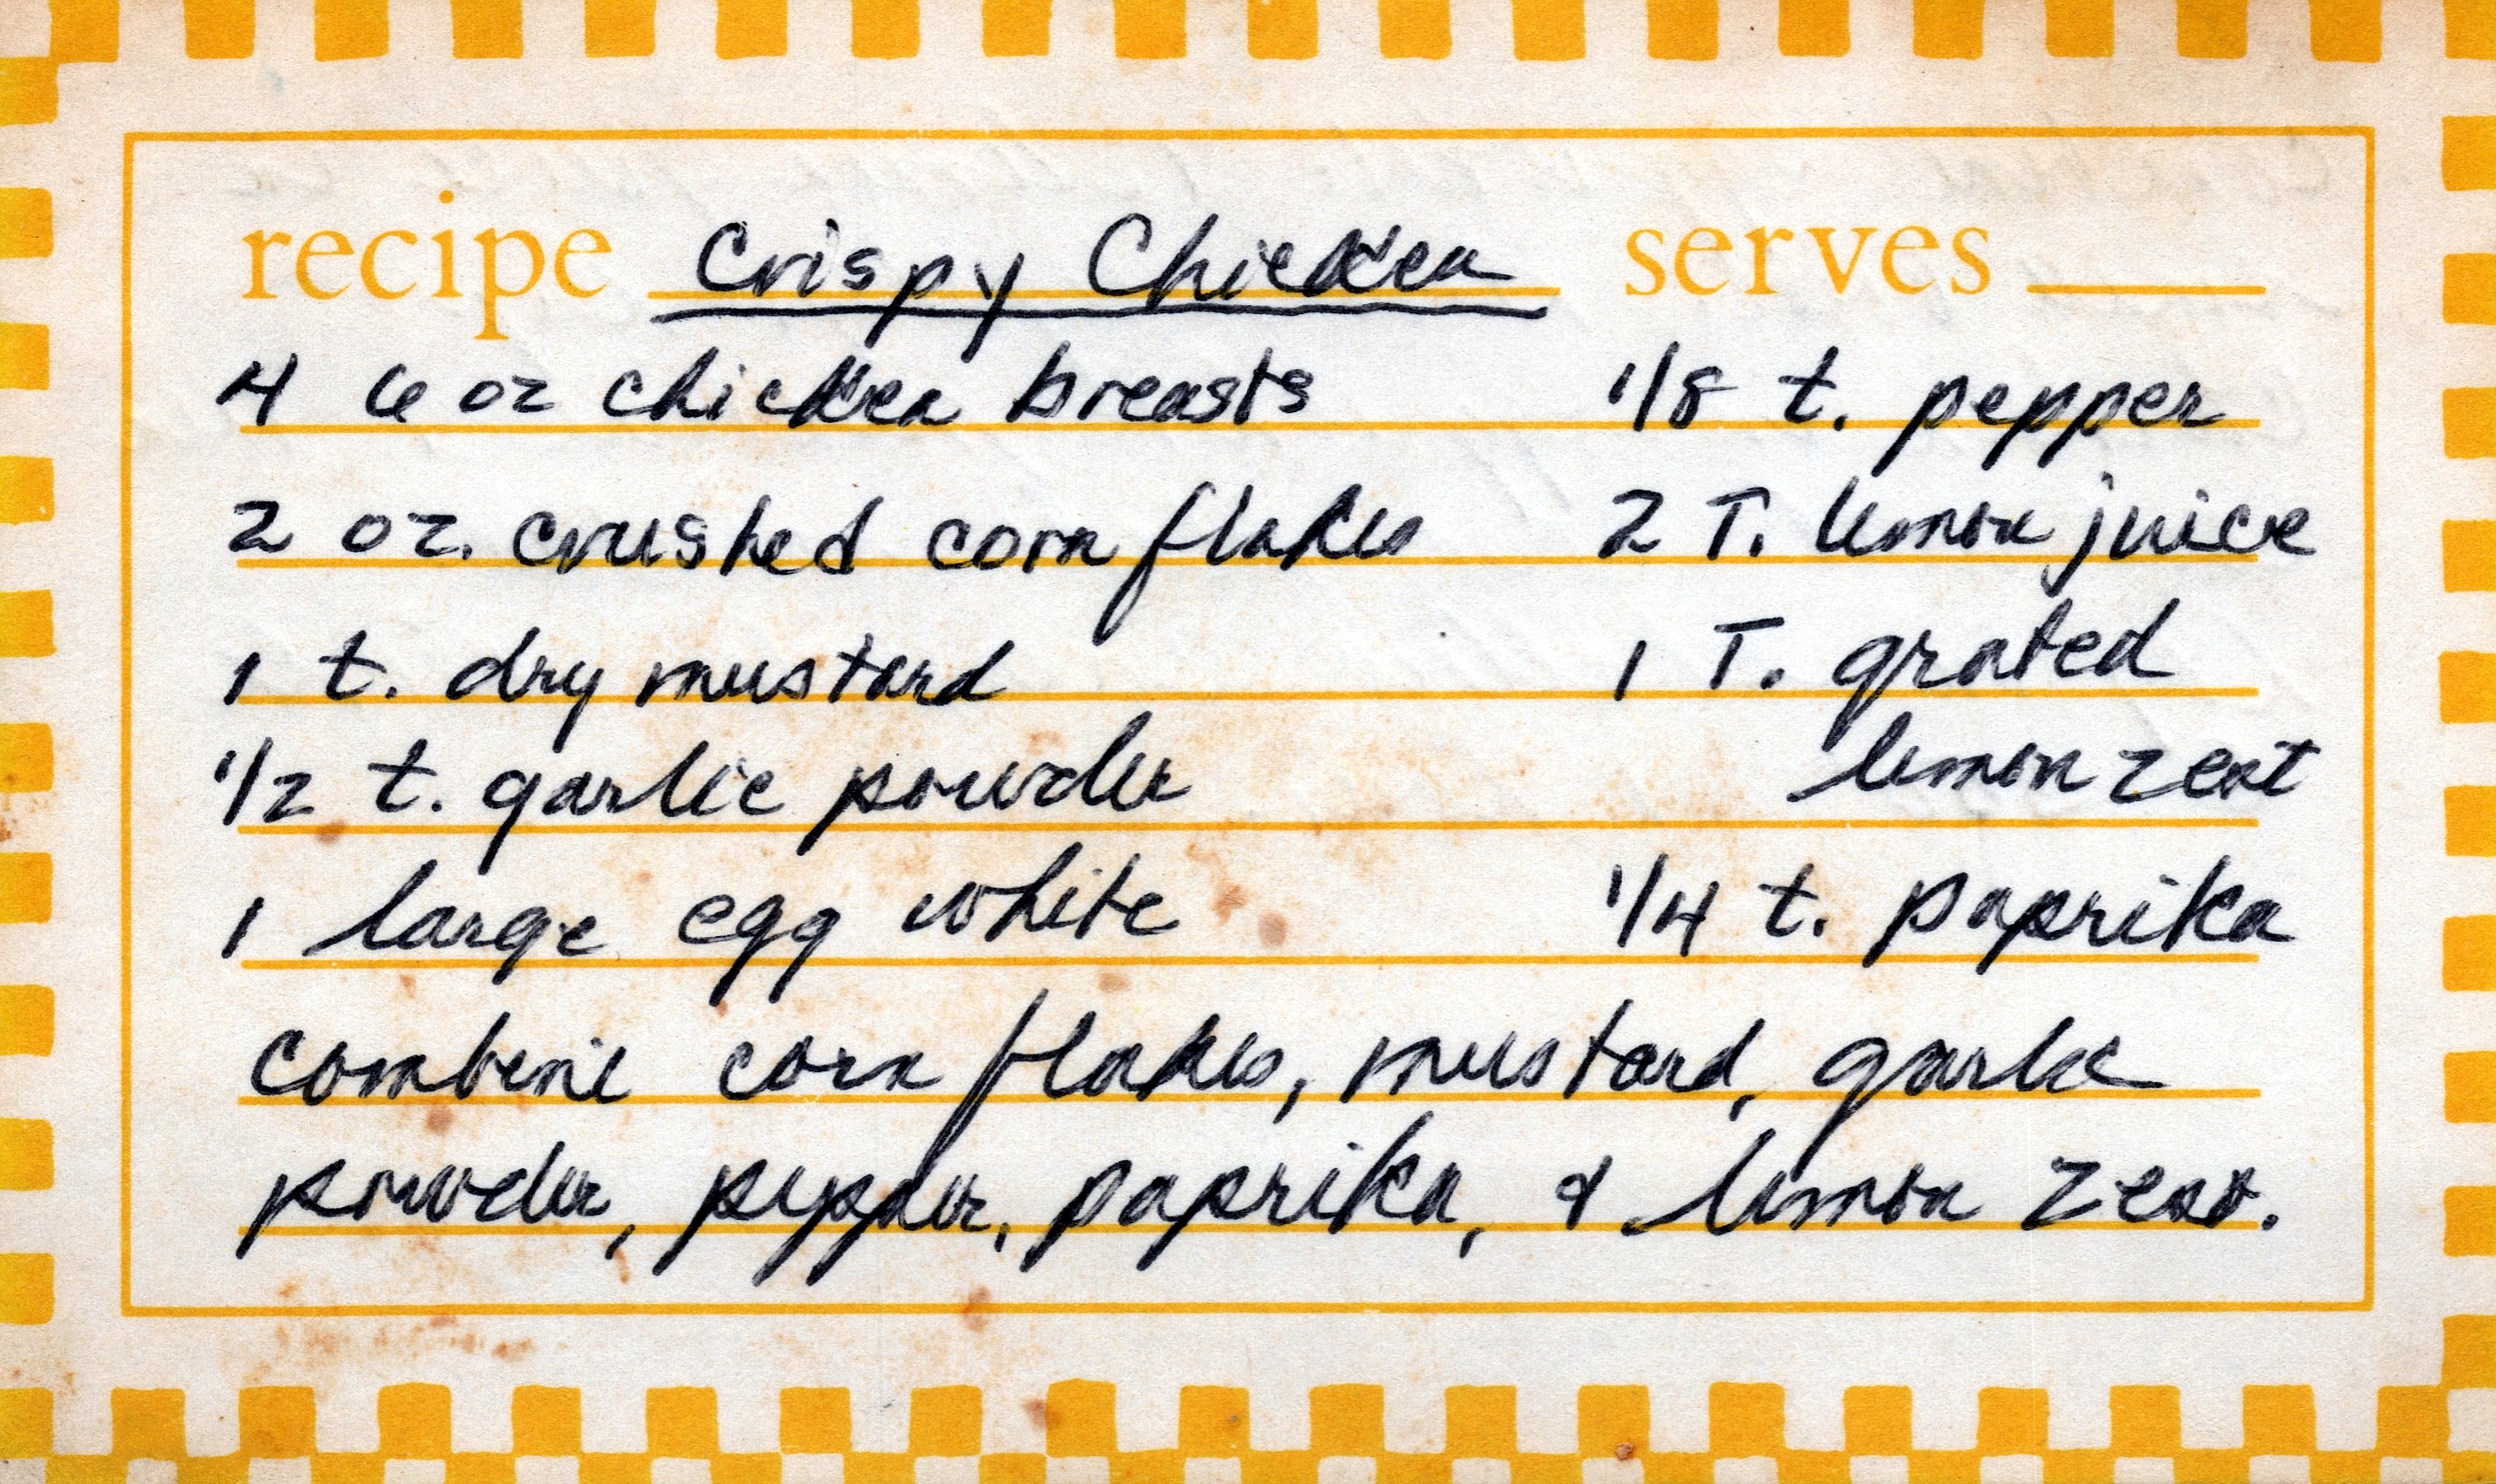 recipe Crispy Chicken serves
4 6 oz chicken breasts 1/8 t. pepper
2 oz. crushed corn flakes 2 T. lemon juice
1 t. dry mustard 1 T. grated
1/2 t. garlic powder lemon zest
1 large egg white 1/4 t. paprika
combine corn flakes, mustard, garlic
powder, pepper, paprika, & lemon zest.